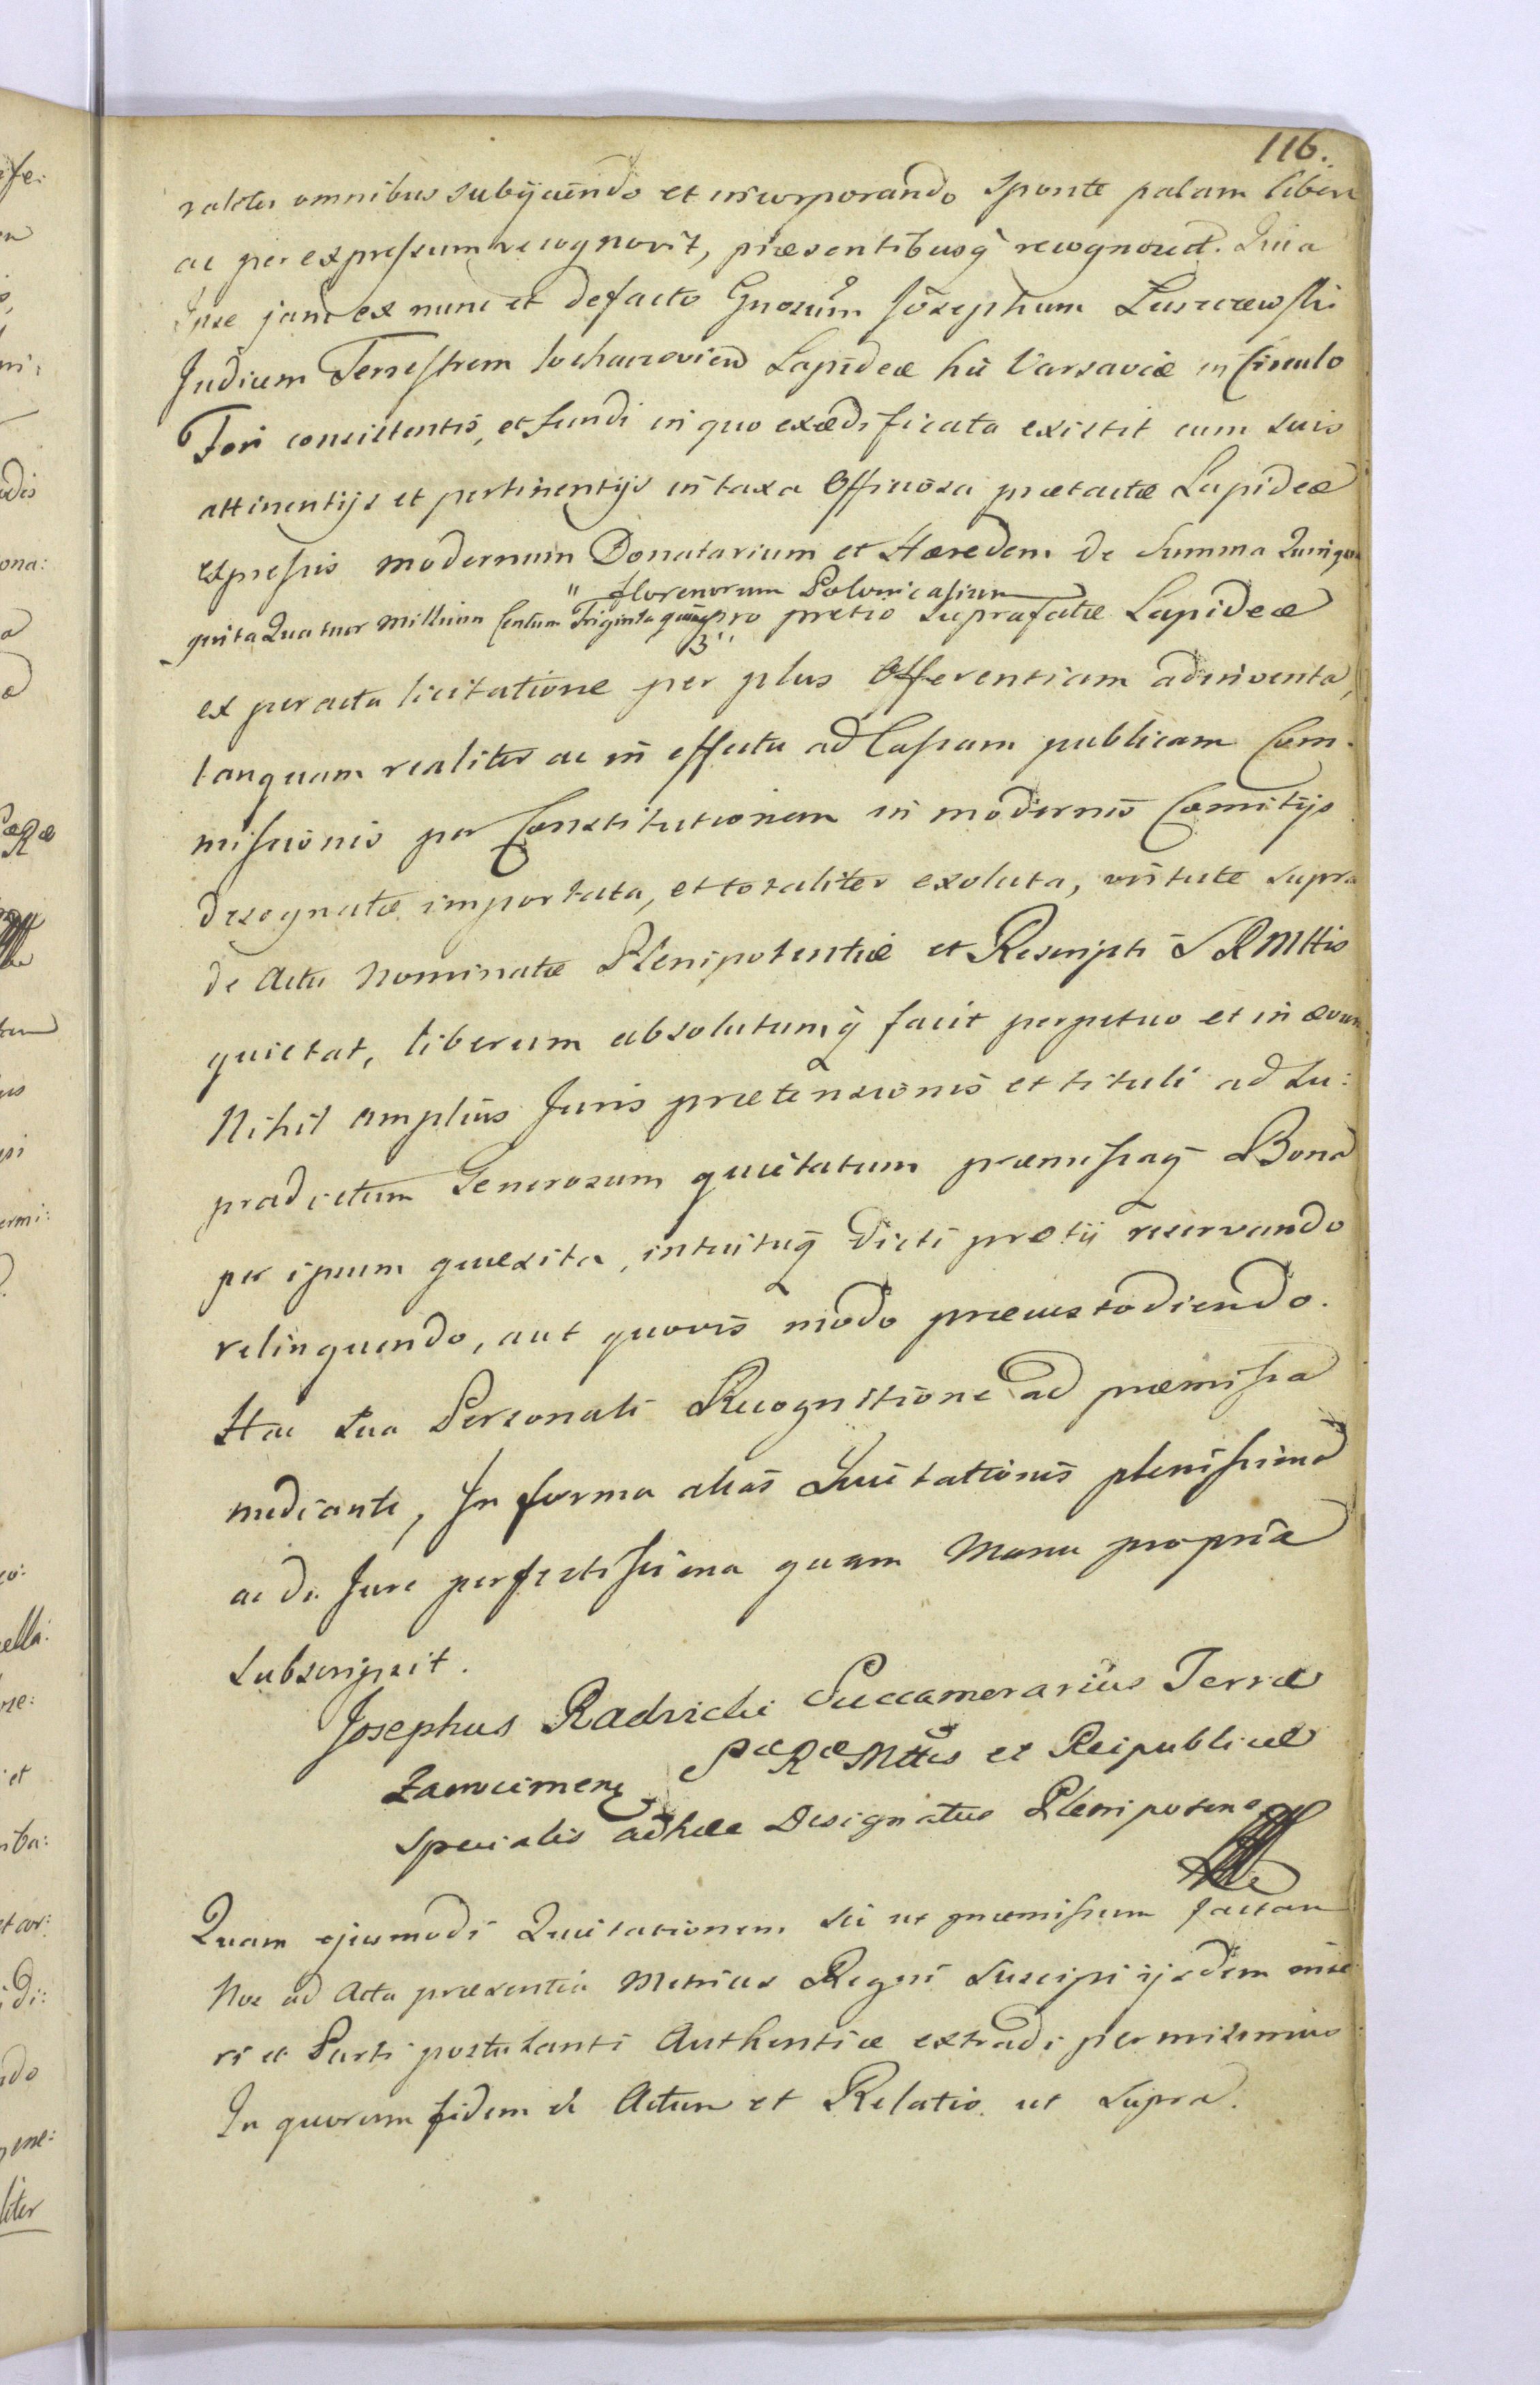 116.
raliter omnibus subijciendo et incorporando sponte palam libere
ac per expressum recognovit, præsentibusq̃ recognoscit. Quia
Ipse jam ex nunc et defacto Gnosum Josephum Luszczewski
Judicem Terrestrem Sochaczovien Lapideæ hic Varsaviæ in Circulo
Fori consistentis, et fundi in quo exædificata existit cum suis
attinentijs et pertinentijs in taxa Officiosa prætactæ Lapideæ
expressis modernum Donatarium et Hæredem de Summa Quinqua
" florenorum Polonicalium
ginta Quatuor Millium Centum Triginta quinq̃ pro pretio suprafatæ Lapideæ
ex peracta licitatione per plus Offerentiam adinventa,
tanquam realiter ac in effectu ad Cassam publicam Com-
missionis per Constitutionem in modernis Comitijs
designatæ importata, et totaliter exoluta, virtute supra
de Actu Nominatæ Plenipotentiæ et Rescripti S R Mttis
quietat, liberum absolutumq̃ facit perpetuo et in ævum
Nihil amplius Juris prætensionis et tituli ad Su:
pradictum Generosum quietatum præmissaq̃ Bona
per ipsum quæsita, intuituq̃ dicti pretij reservando
relinquendo, aut quovis modo præcustodiendo.
Hac Sua Personali Recognitione ad præmissa
mediante, In forma alias Quietationis plenissima
ac de Jure perfectissima quam Manu propria
subscripsit.
Josephus Radzicki Succamerarius Terræ
Zakrocimen S æ R æ Mttis et Reipublicæ
specialis ad hæc Designatus Plenipotens
Quam ejusmodi Quietationem sic ut præmissum factam
Nos ad Acta præsentia Metrices Regni suscipi ijsdem inse
ri et Parti postulanti Authentice extradi permisimus
In quorum fidem et Actum et Relatio ut supra.